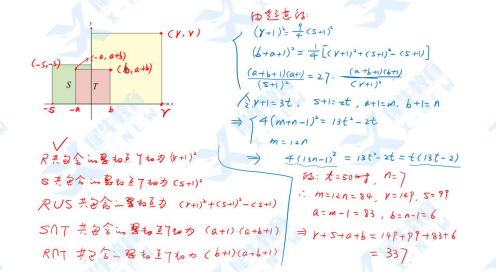 y
(r, r)
(-a, a+b)
(-s, s)
(b, a+b)
S
T
-s
-a
b
r
x
R共包含的整数点个数为 (r+1)²
S共包含的整数点个数为 (s+1)²
R∪S 共包含的整数点个数为 (r+1)²+(s+1)²-(s+1)
S∩T 共包含的整数点个数为 (a+1)·(a+b+1)
R∩T 共包含的整数点个数为 (b+1)(a+b+1)
由题意得:
(r+1)² = 9/4 (s+1)²
(b+a+1)² = 1/4 [(r+1)²+(s+1)²-(s+1)]
(a+b+1)(a+1)/(s+1)² = 27· (a+b+1)(b+1)/(r+1)²
令 r+1=3t, s+1=2t, a+1=m, b+1=n
⇒ 4(m+n-1)² = 13t²-2t
m=12n
⇒ 4(13n-1)² = 13t²-2t = t(13t-2)
得: t=50时, n=7
∴ m=12n=84, r=149, s=99
a=m-1=83, b=n-1=6
⇒ r+s+a+b = 149+99+83+6
= 337